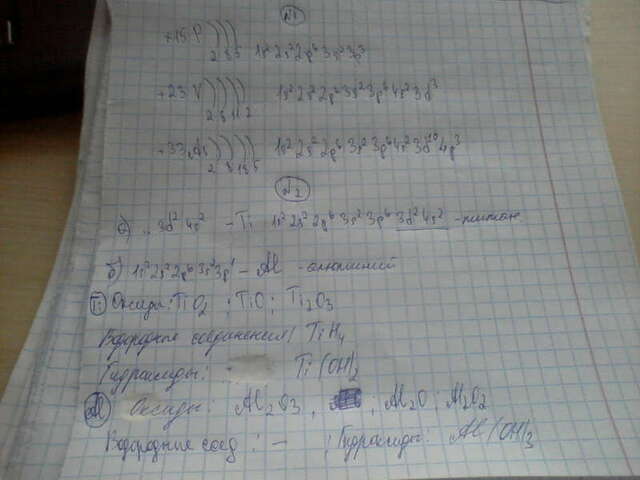 №1
+15 P ))) 2 8 5 1s² 2s² 2p⁶ 3s² 3p³
+23 V )))) 2 8 11 2 1s² 2s² 2p⁶ 3s² 3p⁶ 4s² 3d³
+33 As )))) 2 8 18 5 1s² 2s² 2p⁶ 3s² 3p⁶ 4s² 3d¹⁰ 4p³
№2
а) .. 3d² 4s² - Ti 1s² 2s² 2p⁶ 3s² 3p⁶ 3d² 4s² - титан
б) 1s² 2s² 2p⁶ 3s² 3p¹ - Al - алюминий
Ti Оксиды: TiO₂ ; TiO ; Ti₂O₃
Водородные соединения: TiH₄
Гидроксиды: Ti(OH)₂
Al Оксиды: Al₂O3, ; Al₂O ; Al₂O₂
Водородные соед : — ; Гидроксиды: Al(OH)₃